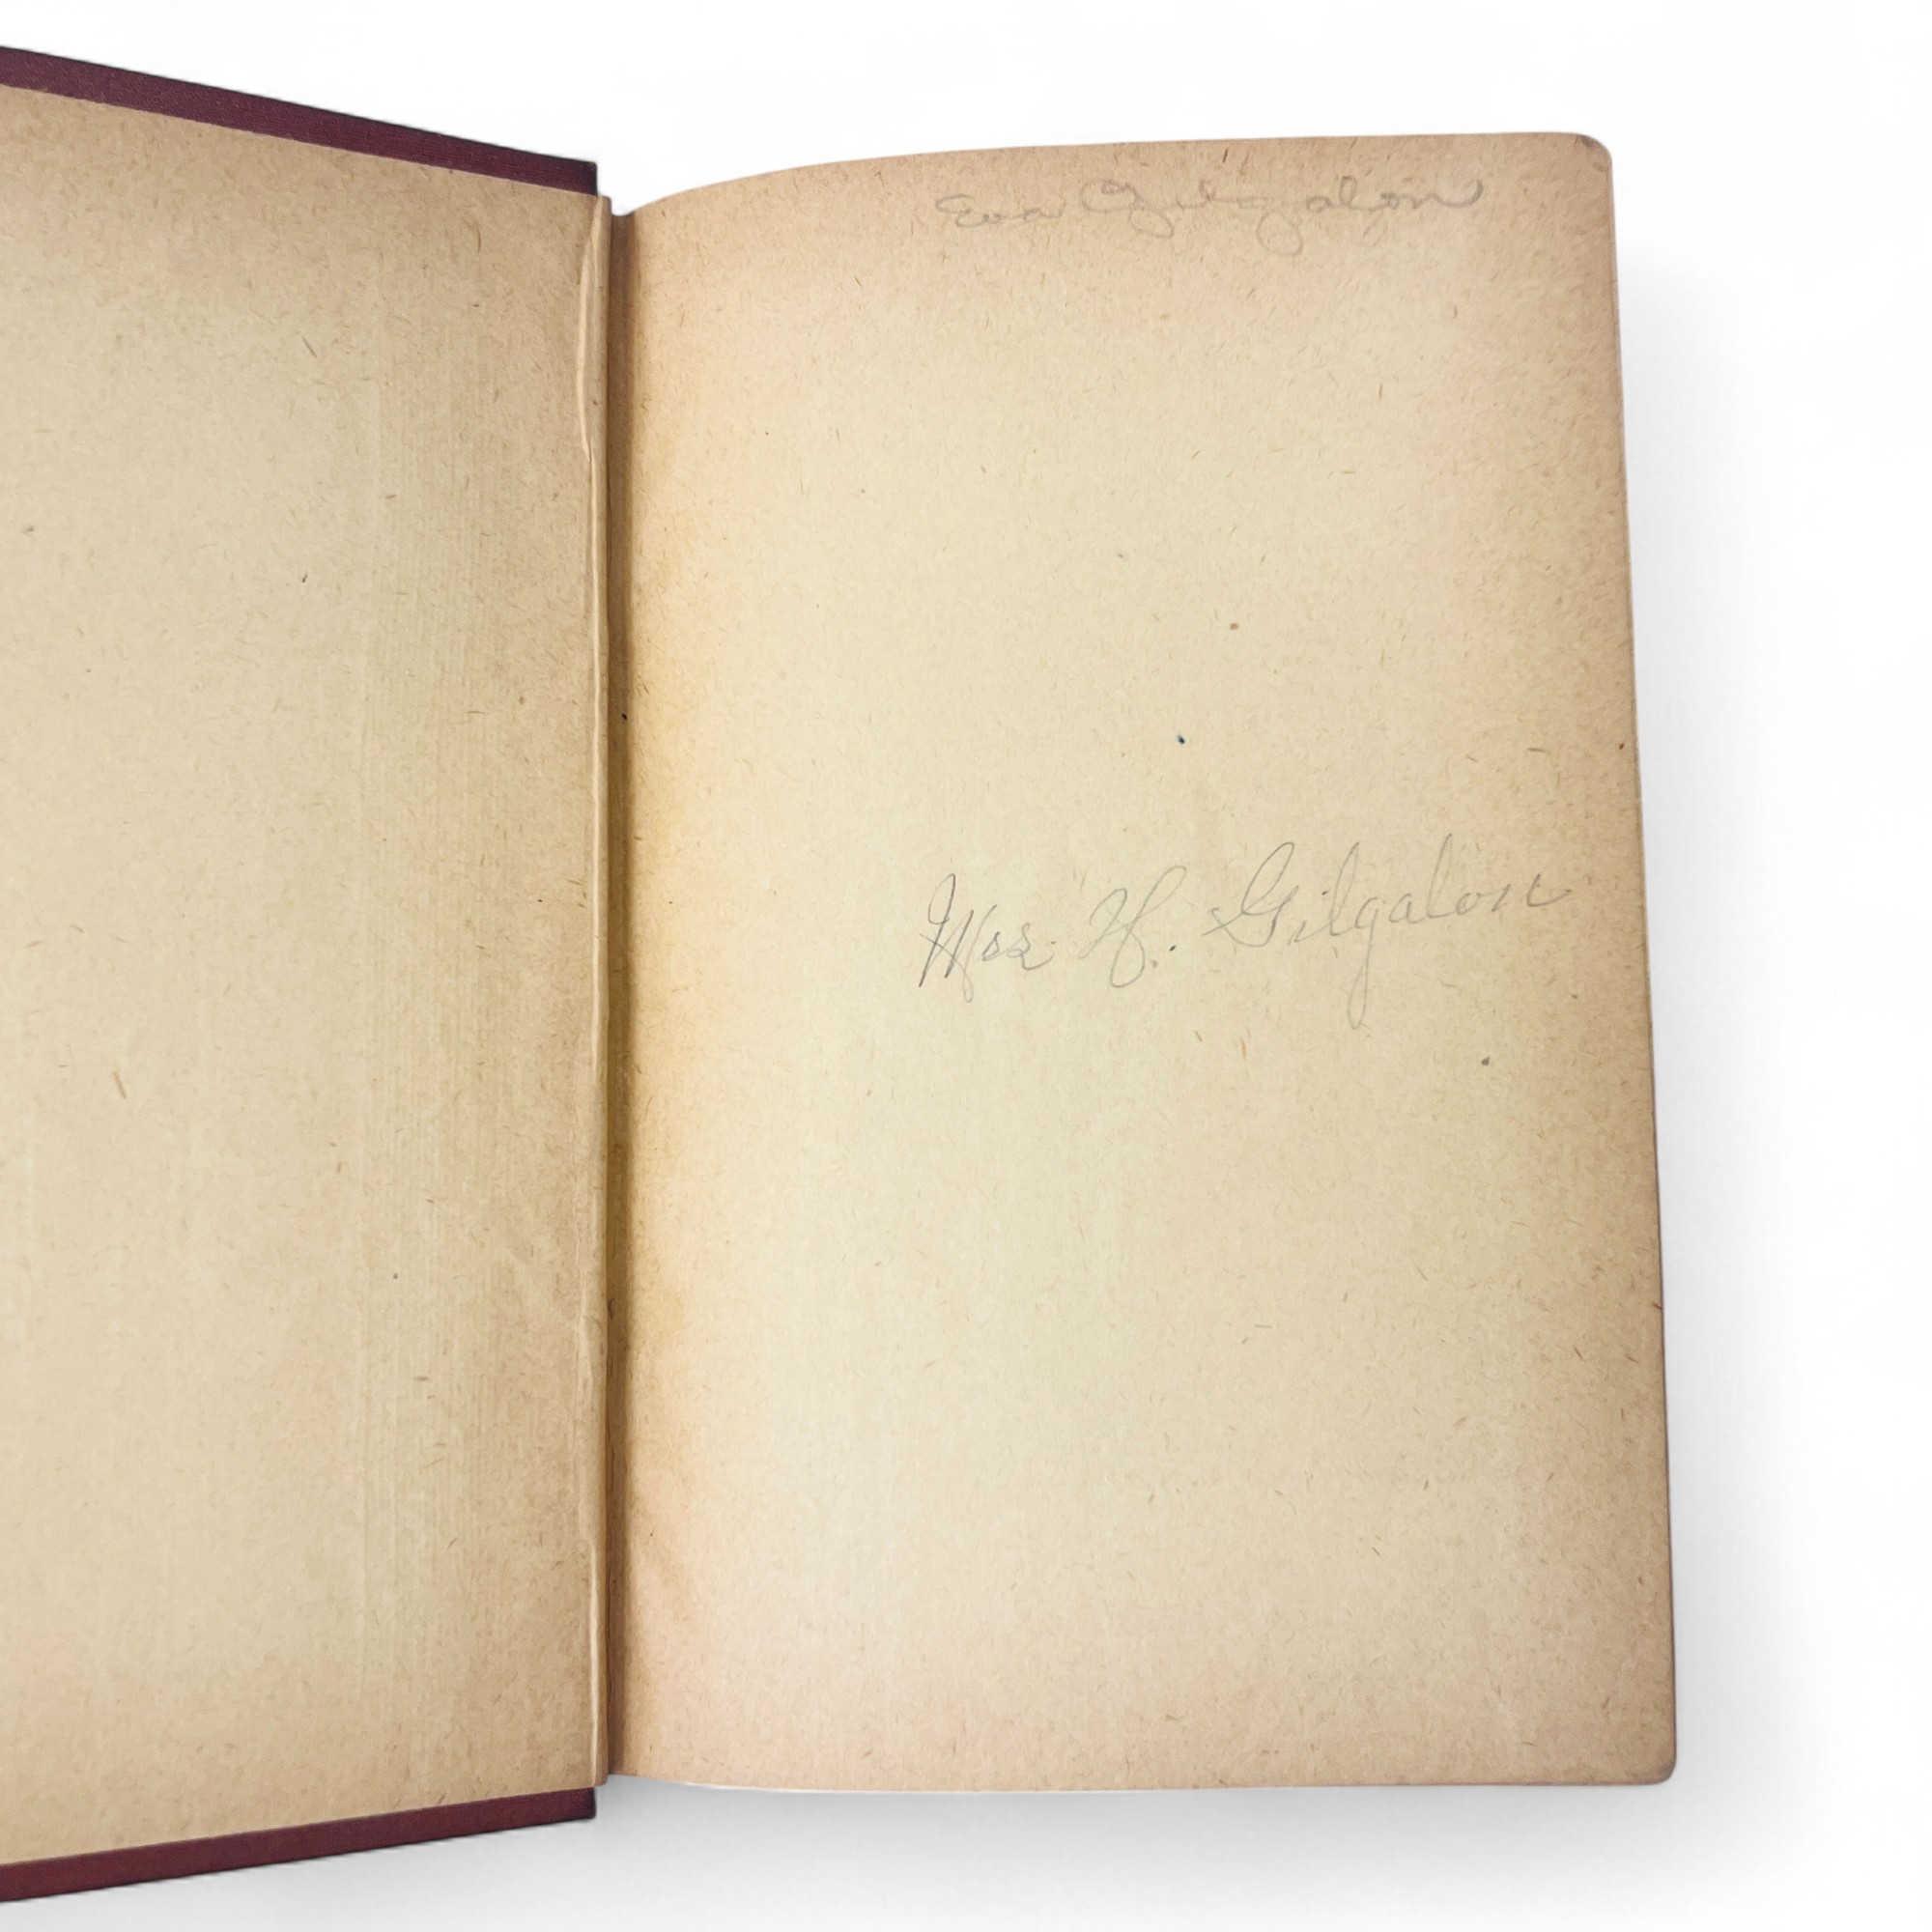 Eva Gilgalon
Mrs H. Gilgalon